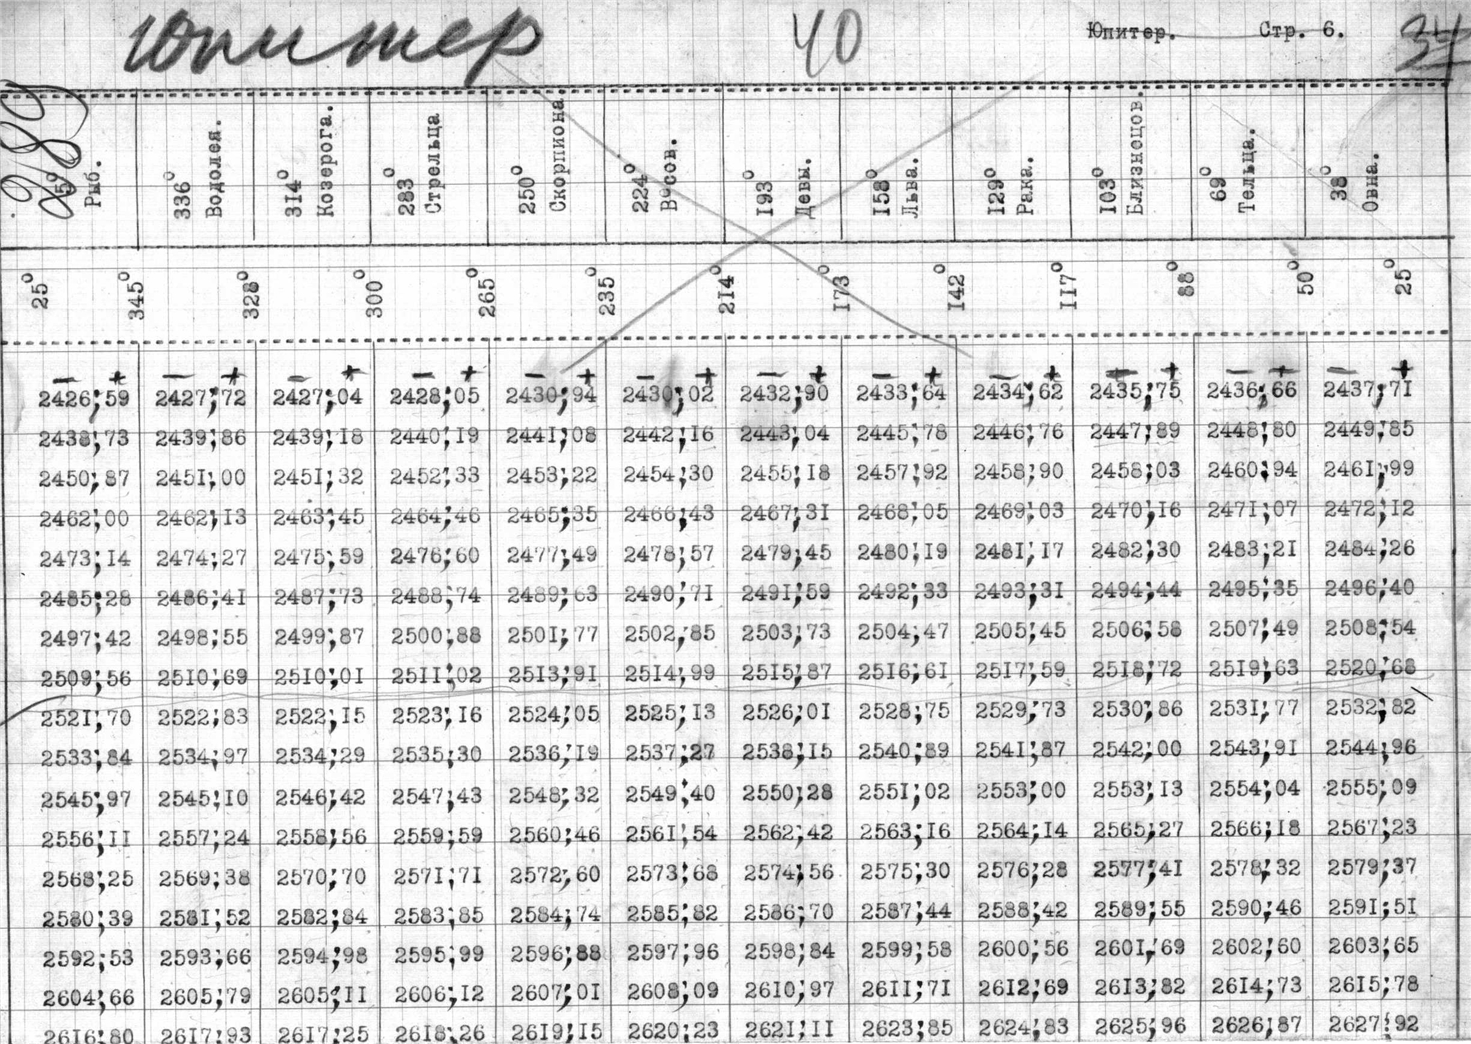 Юпитер 40 Юпитер. Стр. 6. 34
289
25° Рыб. 336° Водолея. 314° Козерога. 283° Стрельца 250° Скорпиона. 224° Весов. 193° Девы. 158° Льва. 129° Рака. 103° Близнецов. 69° Тельца. 38° Овна.
25° 345° 328° 300° 265° 235° 214° 173° 142° 117° 88° 50° 25°
- + - + - + - + - + - + - + - + - + - + - + - +
2426;59 2427;72 2427;04 2428;05 2430;94 2430;02 2432;90 2433;64 2434;62 2435;75 2436;66 2437;71
2438;73 2439;86 2439;18 2440;19 2441;08 2442;16 2443;04 2445;78 2446;76 2447;89 2448;80 2449;85
2450;87 2451;00 2451;32 2452;33 2453;22 2454;30 2455;18 2457;92 2458;90 2458;03 2460;94 2461;99
2462;00 2462;13 2463;45 2464;46 2465;35 2466;43 2467;31 2468;05 2469;03 2470;16 2471;07 2472;12
2473;14 2474;27 2475;59 2476;60 2477;49 2478;57 2479;45 2480;19 2481;17 2482;30 2483;21 2484;26
2485;28 2486;41 2487;73 2488;74 2489;63 2490;71 2491;59 2492;33 2493;31 2494;44 2495;35 2496;40
2497;42 2498;55 2499;87 2500;88 2501;77 2502;85 2503;73 2504;47 2505;45 2506;58 2507;49 2508;54
2509;56 2510;69 2510;01 2511;02 2513;91 2514;99 2515;87 2516;61 2517;59 2518;72 2519;63 2520;68
2521;70 2522;83 2522;15 2523;16 2524;05 2525;13 2526;01 2528;75 2529;73 2530;86 2531;77 2532;82
2533;84 2534;97 2534;29 2535;30 2536;19 2537;27 2538;15 2540;89 2541;87 2542;00 2543;91 2544;96
2545;97 2545;10 2546;42 2547;43 2548;32 2549;40 2550;28 2551;02 2553;00 2553;13 2554;04 2555;09
2556;11 2557;24 2558;56 2559;59 2560;46 2561;54 2562;42 2563;16 2564;14 2565;27 2566;18 2567;23
2568;25 2569;38 2570;70 2571;71 2572;60 2573;68 2574;56 2575;30 2576;28 2577;41 2578;32 2579;37
2580;39 2581;52 2582;84 2583;85 2584;74 2585;82 2586;70 2587;44 2588;42 2589;55 2590;46 2591;51
2592;53 2593;66 2594;98 2595;99 2596;88 2597;96 2598;84 2599;58 2600;56 2601;69 2602;60 2603;65
2604;66 2605;79 2605;11 2606;12 2607;01 2608;09 2610;97 2611;71 2612;69 2613;82 2614;73 2615;78
2616;80 2617;93 2617;25 2618;26 2619;15 2620;23 2621;11 2623;85 2624;83 2625;96 2626;87 2627;92